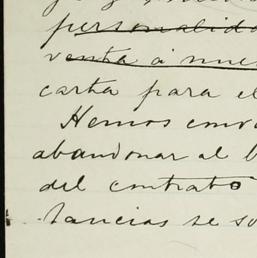 personalida
venta á nues
carta para el
Hemos conv
abandonar al b
del contrato
tancias se so